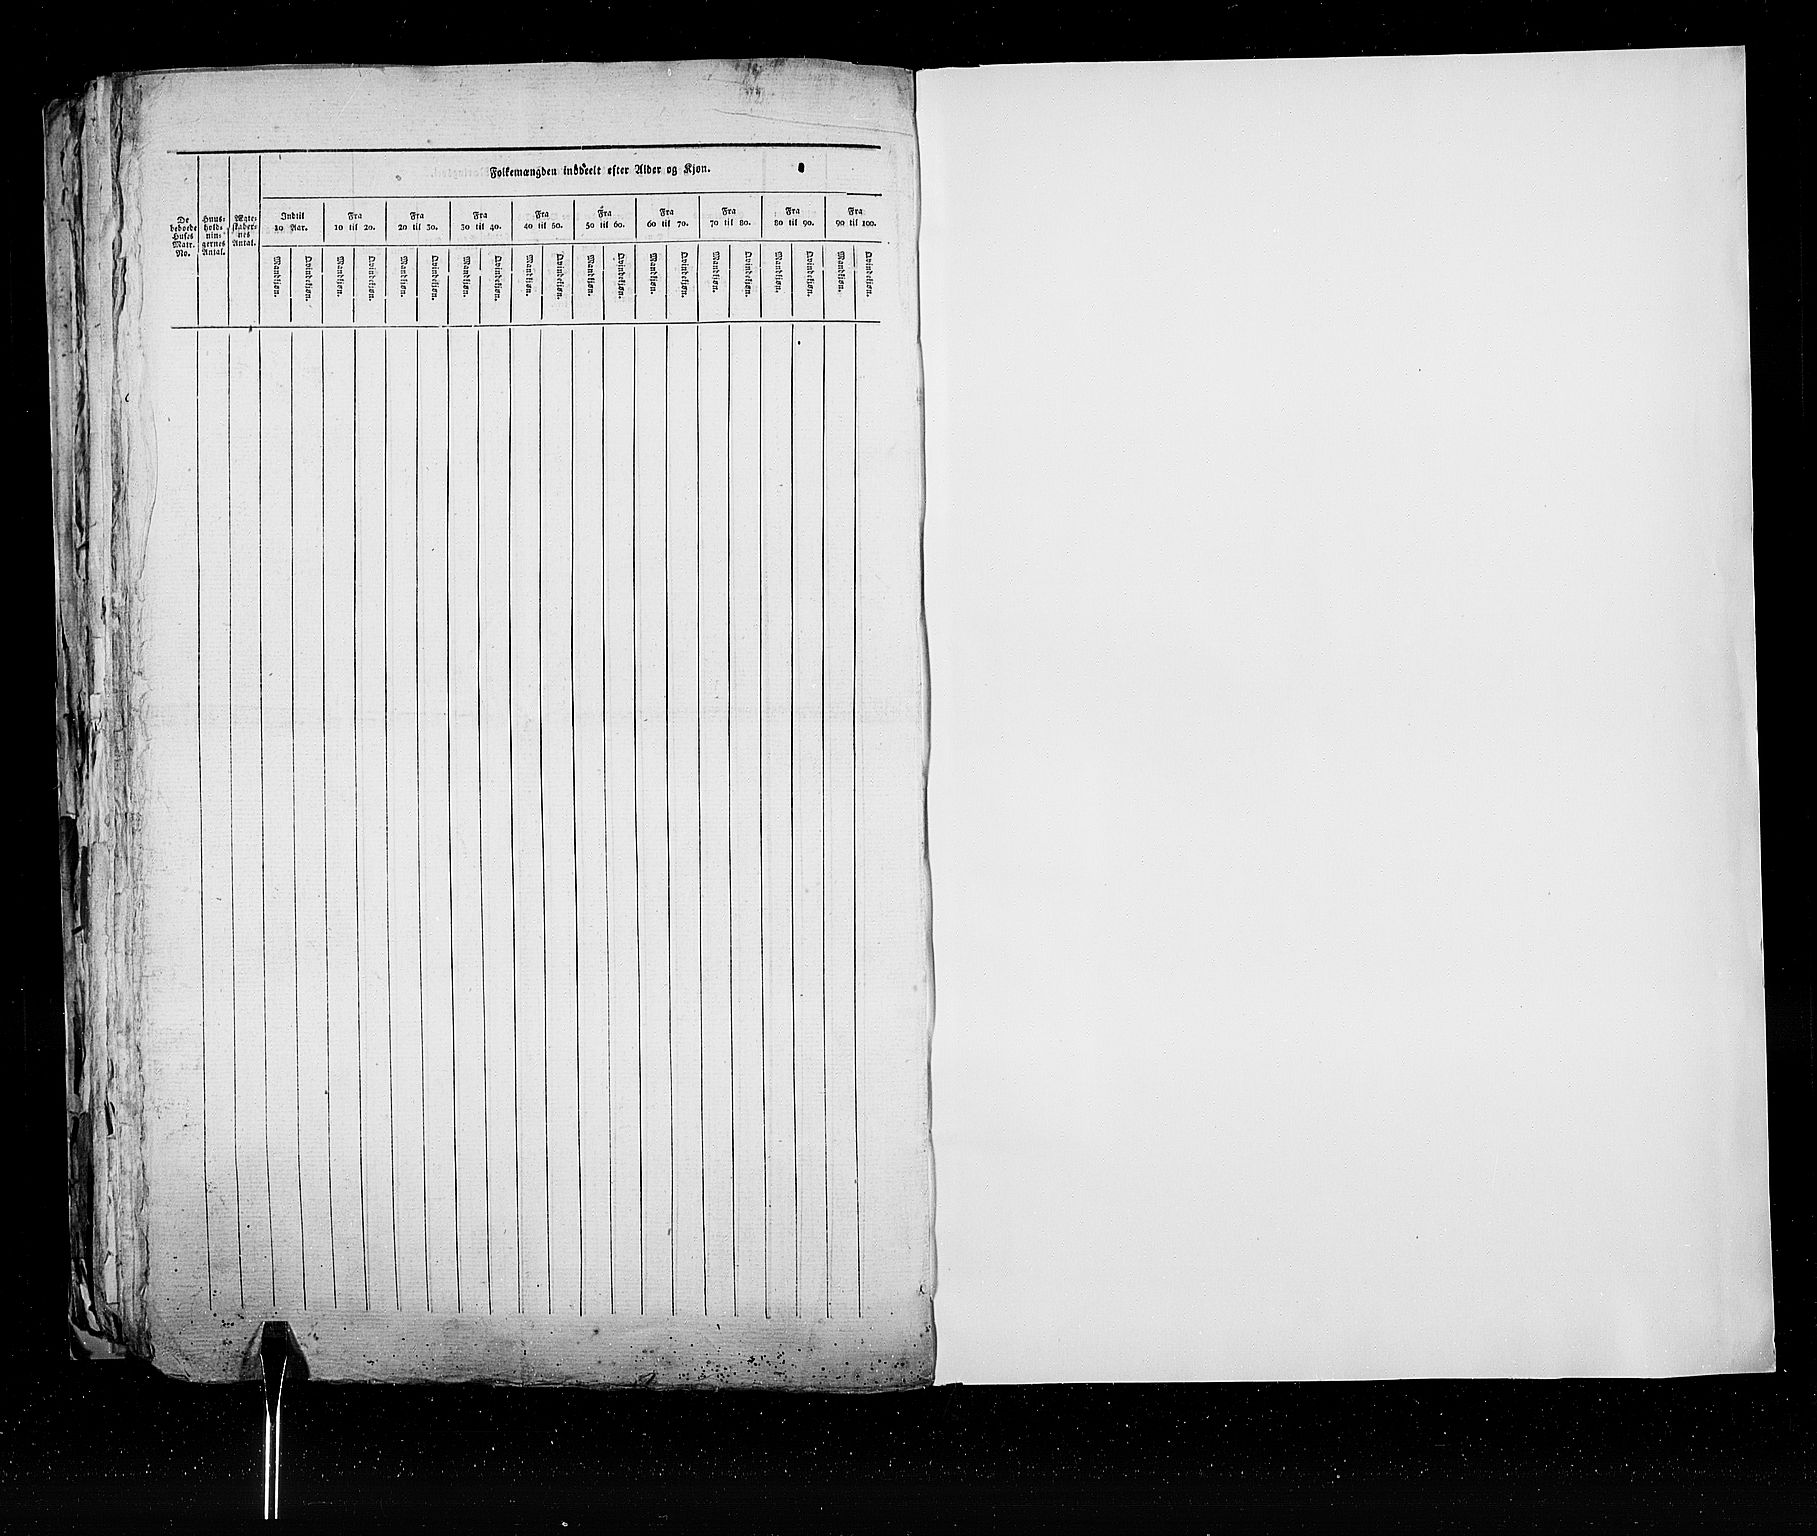 Folkemængden inddeelt efter Alder og Kjøn.
De
beboede
Huses
Matr.
No.
Huus-
hold-
nin-
gernes
Antal.
Ægte-
skaber-
nes
Antal.
Indtil
10 Aar.
Fra
10 til 20.
Fra
20 til 30.
Fra
30 til 40.
Fra
40 til 50.
Fra
50 til 60.
Fra
60 til 70.
Fra
70 til 80.
Fra
80 til 90.
Fra
90 til 100.
Mandkjøn.
Qvindekjøn.
Mandkjøn.
Qvindekjøn.
Mandkjøn.
Qvindekjøn.
Mandkjøn.
Qvindekjøn.
Mandkjøn.
Qvindekjøn.
Mandkjøn.
Qvindekjøn.
Mandkjøn.
Qvindekjøn.
Mandkjøn.
Qvindekjøn.
Mandkjøn.
Qvindekjøn.
Mandkjøn.
Qvindekjøn.